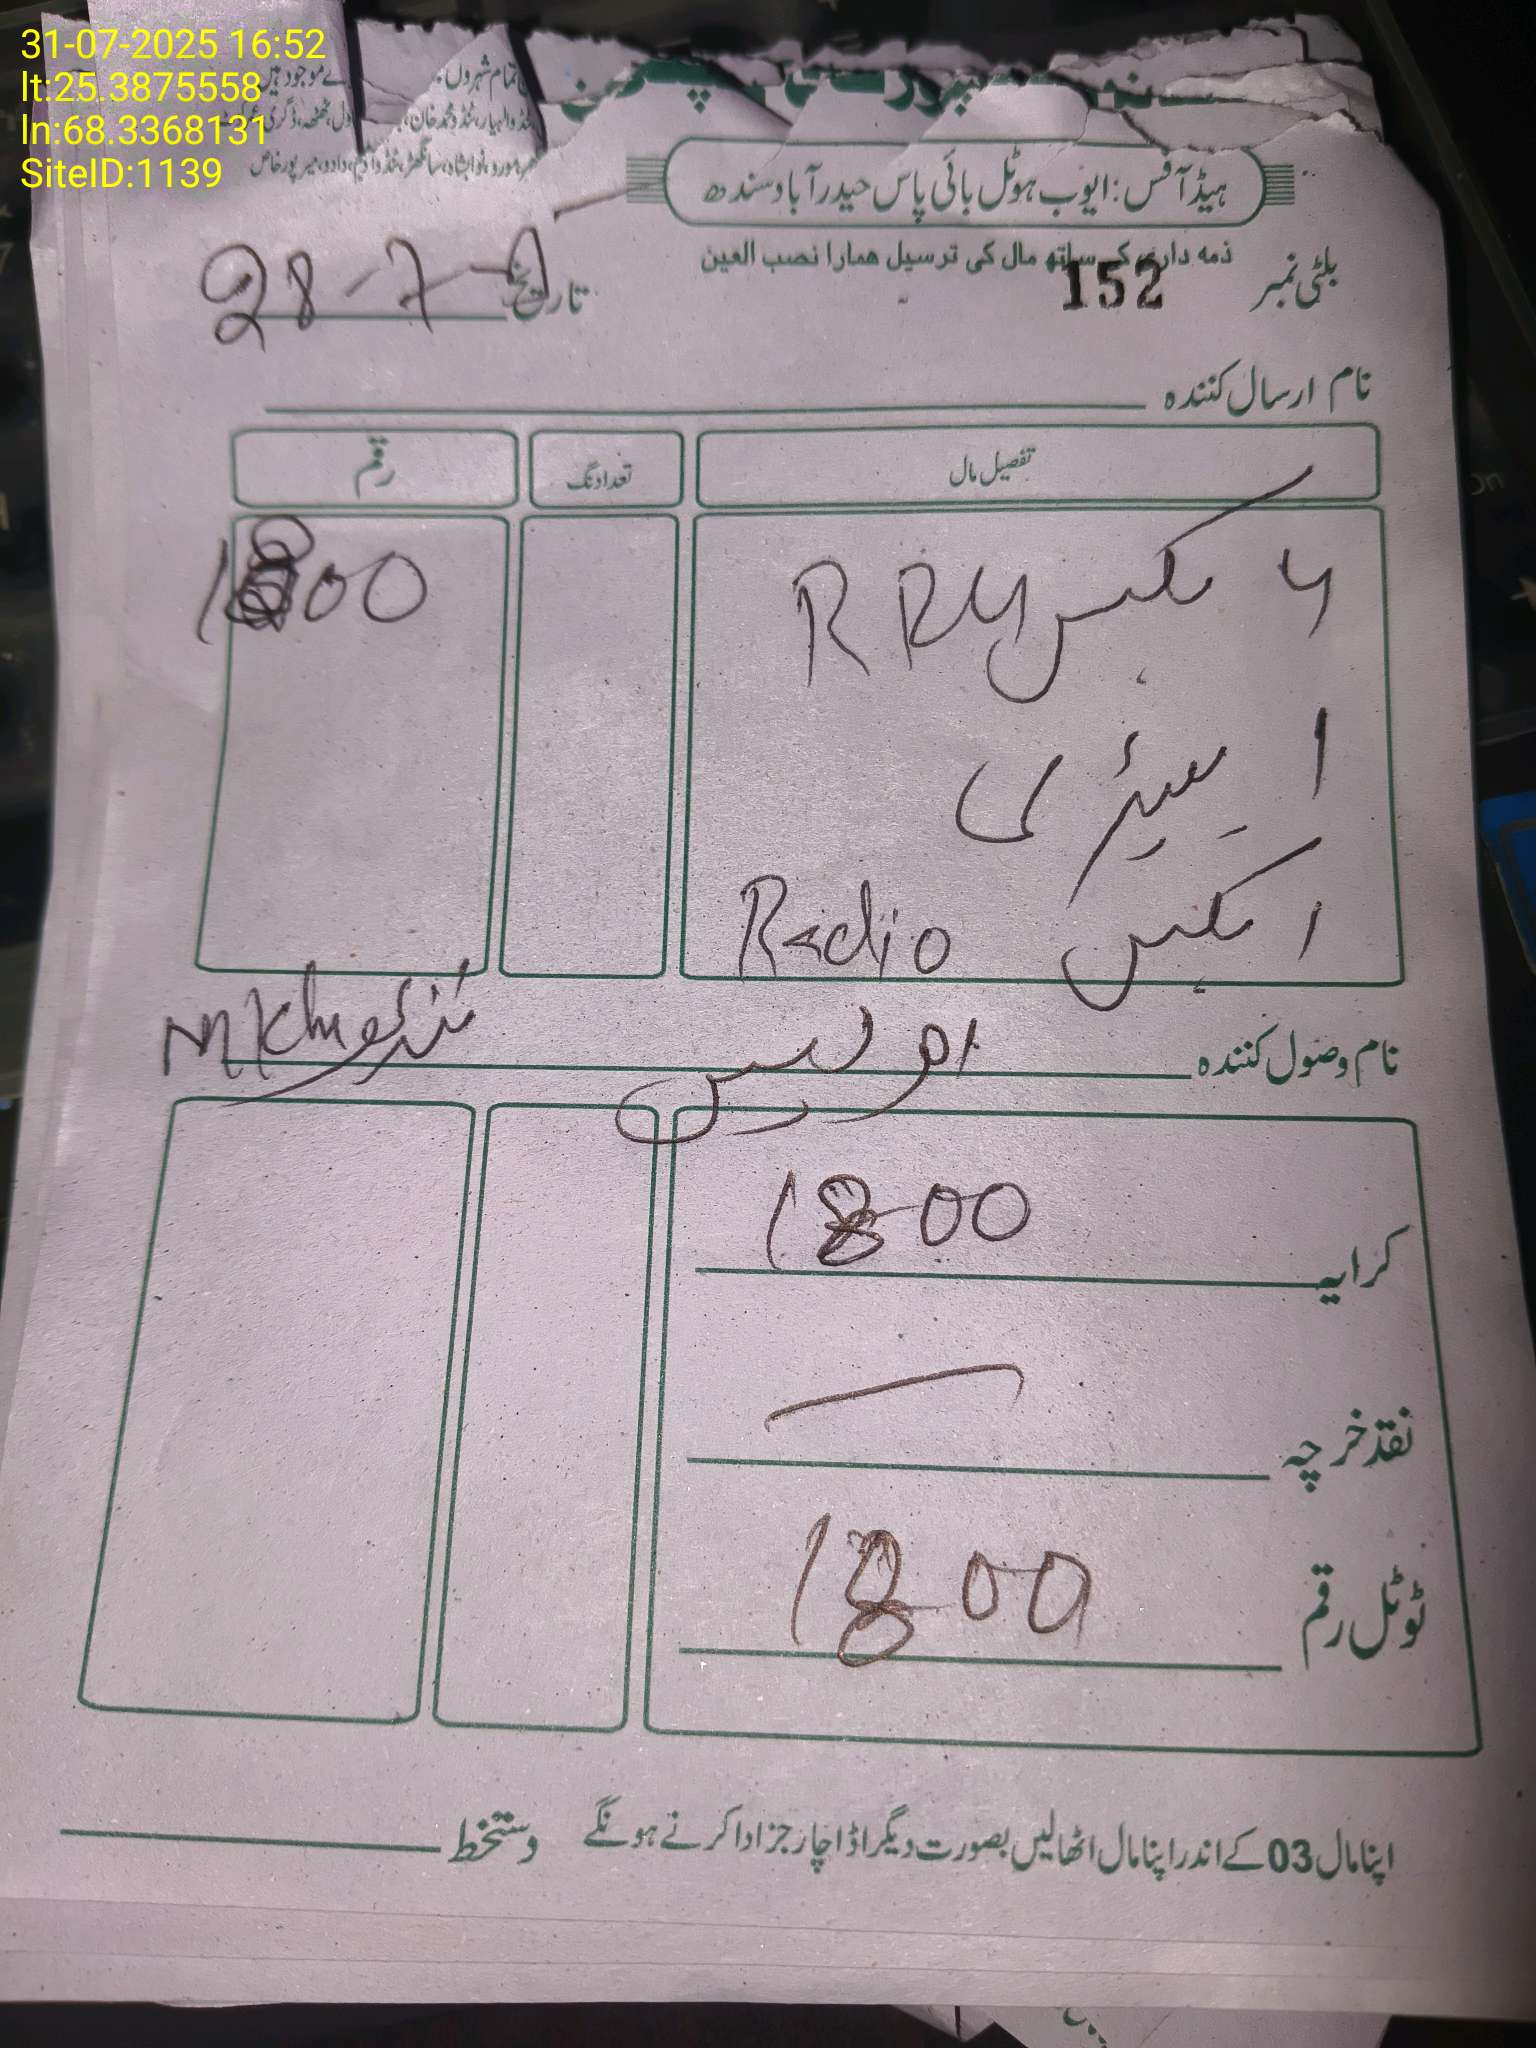 31-07-2025 16:52
lt:25.3875558
ln:68.3368131
SiteID:1139
تمام شہروں
موجود ہیں
نوابشاہ، سانگھڑ، ٹنڈوآدم، دادو، میرپورخاص
ہیڈ آفس: ایوب ہوٹل بائی پاس حیدرآباد سندھ
ذمہ داری کے ساتھ مال کی ترسیل ہمارا نصب العین
بلٹی نمبر 152
تاریخ 28-7
نام ارسال کنندہ
تفصیل مال تعداد نگ رقم
بکس RRU 1800
1 بیٹری
1 بکس Radio
نام وصول کنندہ
کرایہ 1800
نقد خرچہ
ٹوٹل رقم 1800
اپنا مال 03 کے اندر اپنا مال اٹھالیں بصورت دیگر اڈا چارجز ادا کرنے ہونگے دستخط